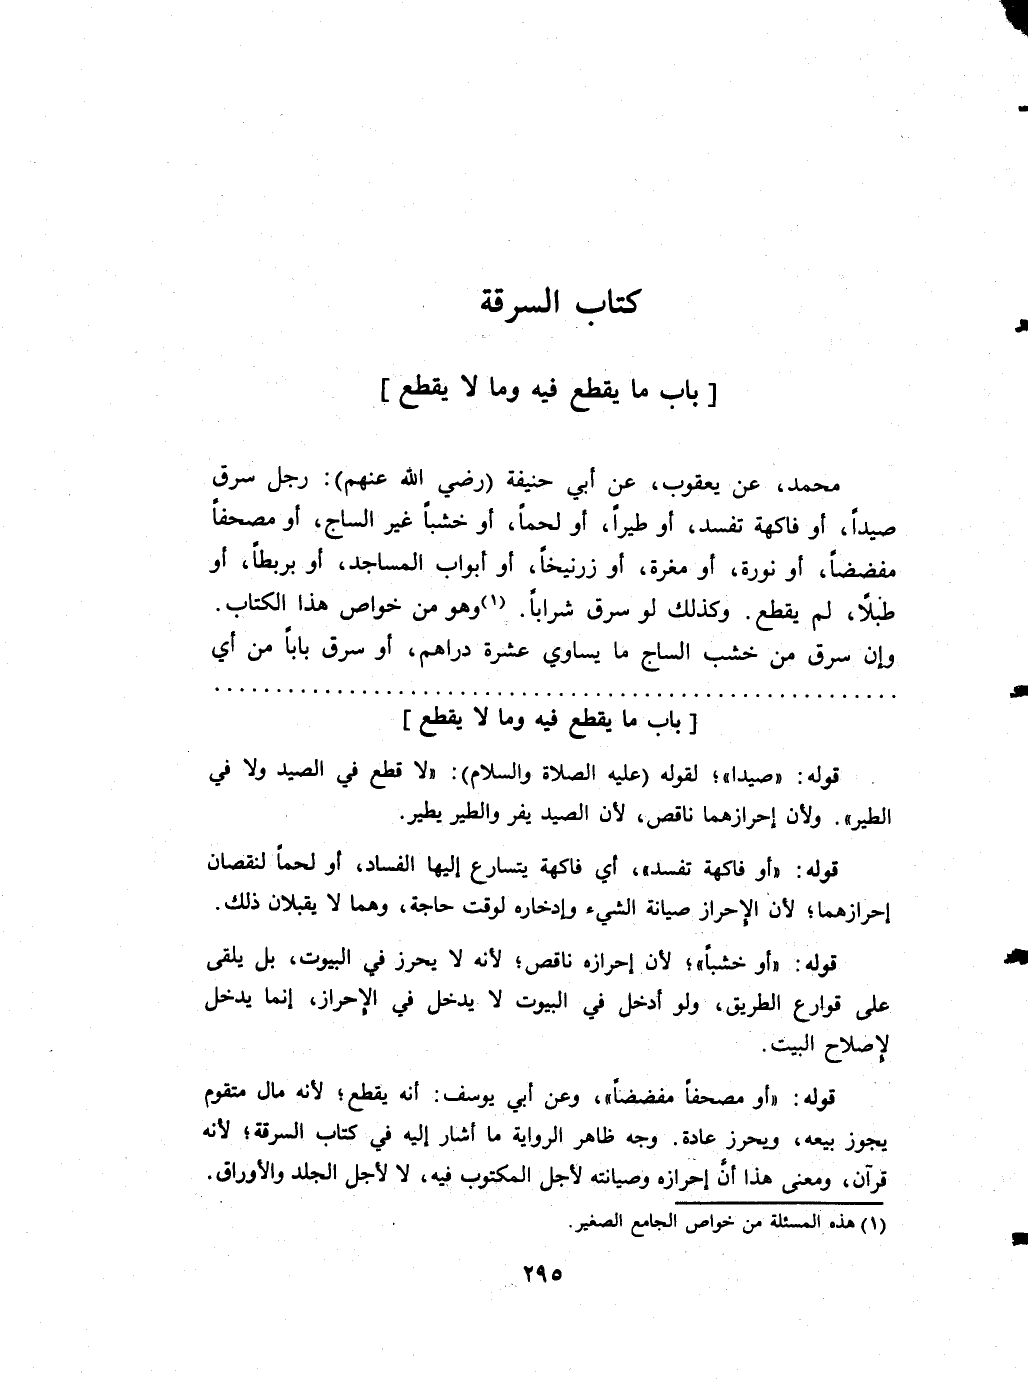 كتاب السرقة
[ باب ما يقطع فيه وما لا يقطع ]
محمد، عن يعقوب، عن أبي حنيفة (رضي الله عنهم): رجل سرق
صيداً، أو فاكهة تفسد، أو طيراً، أو لحماً، أو خشباً غير الساج، أو مصحفاً
مفضضاً، أو نورة، أو مغرة، أو زرنيخاً، أو أبواب المساجد، أو بربطاً، أو
طبلًا، لم يقطع. وكذلك لو سرق شراباً. (١)وهو من خواص هذا الكتاب.
وإن سرق من خشب الساج ما يساوي عشرة دراهم، أو سرق باباً من أي
[ باب ما يقطع فيه وما لا يقطع ]
قوله: «صيدا»؛ لقوله (عليه الصلاة والسلام): «لا قطع في الصيد ولا في
الطير». ولأن إحرازهما ناقص، لأن الصيد يفر والطير يطير.
قوله: «أو فاكهة تفسد»، أي فاكهة يتسارع إليها الفساد، أو لحماً لنقصان
إحرازهما؛ لأن الإحراز صيانة الشيء وإدخاره لوقت حاجة، وهما لا يقبلان ذلك.
قوله: «أو خشباً»؛ لأن إحرازه ناقص؛ لأنه لا يحرز في البيوت، بل يلقى
على قوارع الطريق، ولو أدخل في البيوت لا يدخل في الإحراز، إنما يدخل
لإصلاح البيت.
قوله: «أو مصحفاً مفضضاً»، وعن أبي يوسف: أنه يقطع؛ لأنه مال متقوم
يجوز بيعه، ويحرز عادة. وجه ظاهر الرواية ما أشار إليه في كتاب السرقة؛ لأنه
قرآن، ومعنى هذا أنَّ إحرازه وصيانته لأجل المكتوب فيه، لا لأجل الجلد والأوراق.
(١) هذه المسئلة من خواص الجامع الصغير.
٢٩٥